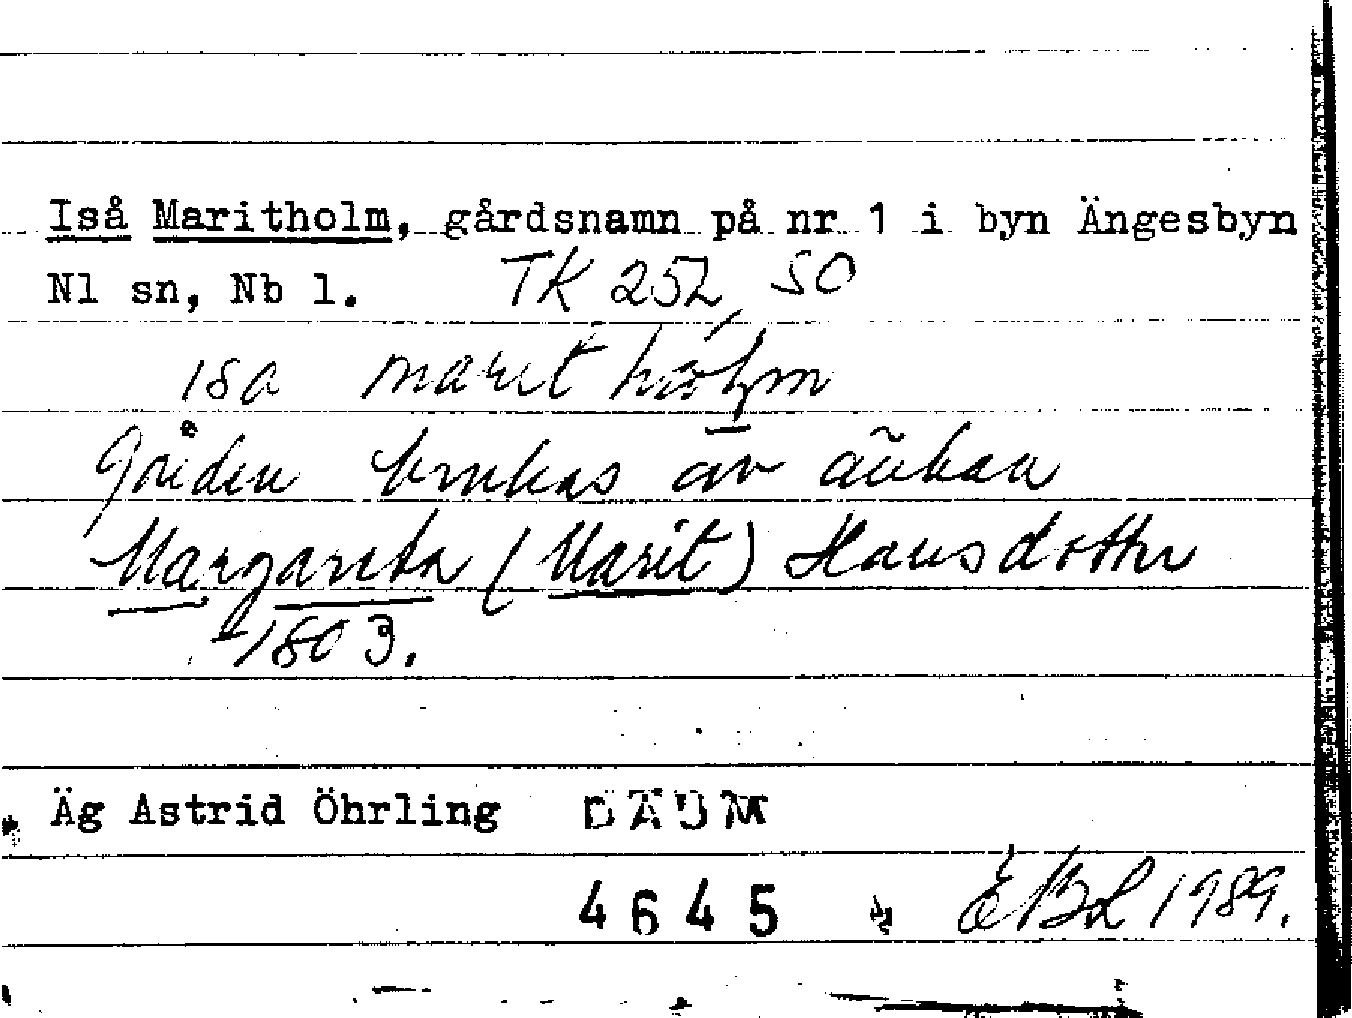 Iså Maritholm, gårdsnamn på nr 1 i byn Ängesbyn
Nl sn, Nb l. TK 252 SO
isa marit hólm
Gården brukas av änkan
Margareta (Marit) Hansdotter
1803.
Äg Astrid Öhrling DAUM
4645 EBL 1989.